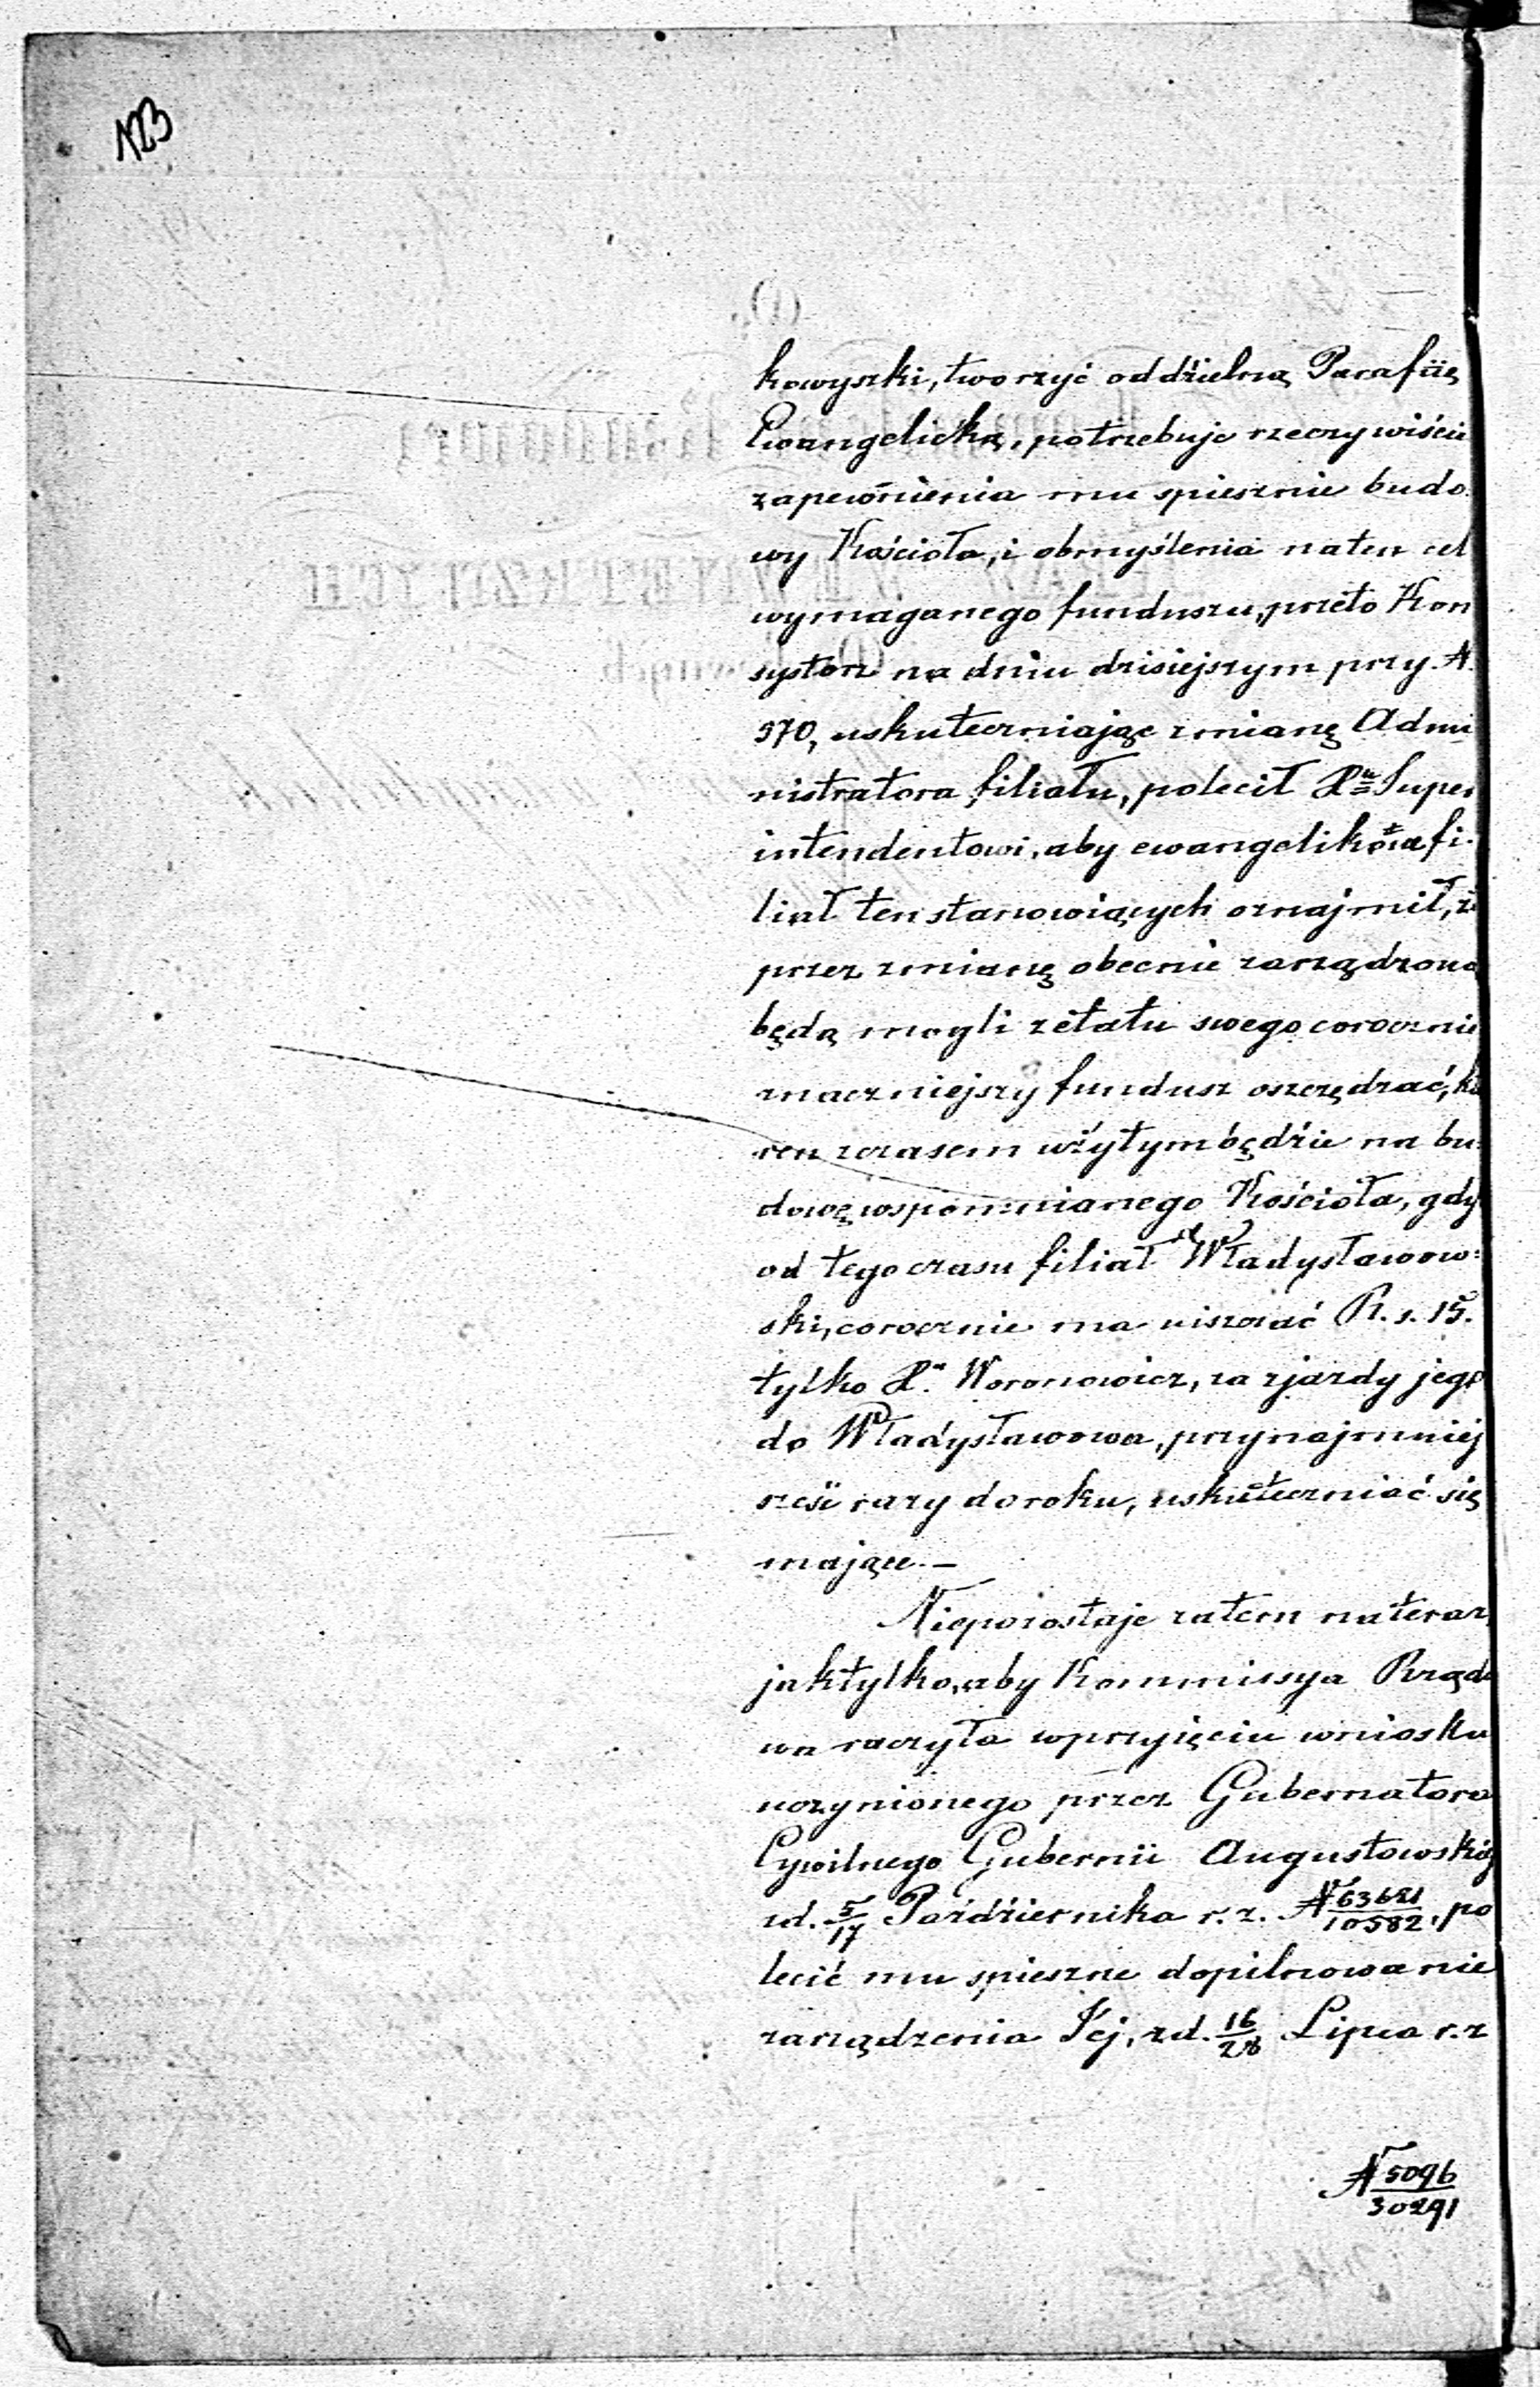 123
kowyszki, tworzyć oddzielną Parafiię
Ewangelicką, potrzebuje rzeczywiście
zapewnienia mu spiesznie budo
wy Kościoła, i obmyślenia naten cel
wymaganego funduszu, przeto Kon
systorz na dniu dzisiejszym przy N.
970, uskuteczniając zmianę Admi
nistratora filiału, polecił Pu Super
intendentowi, aby ewangelików fi-
liał ten stanowiących oznajmił, że
przez zmianę obecnie zarządzoną
będą mogli zetatu swego corocznie
znaczniejszy fundusz oszczędzać, któ
ren zczasem użytym będzie na bu-
dowę wspomnianego Kościoła, gdy
od tego czasu filiał Władysławow-
ski, corocznie ma uiszczać R. s. 15.
tylko Pu Woronowicz, za zjazdy jego
do Władysławowa, przynajmniej
sześć razy do roku, uskuteczniać się
mające. —
Niepozostaje zatem nateraz,
jaktylko, aby Kommissya Rządo
wa raczyła wprzyięciu wniosku
uczynionego przez Gubernatora
Cywilnego Gubernii Augustowskiej
zd. 5/17 Października r. z. N 63621/10582, po
lecić mu spieszne dopilnowanie
zarządzenia Jej, zd. 16/28 Lipca r. z
N 5096/30291